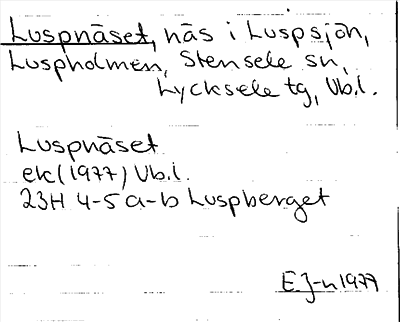 Luspnäset, näs i Luspsjön,
Luspholmen, Stensele sn,
Lycksele tg, Vb.l.
Luspnäset
ek (1977) Vb.l.
23H 4-5 a-b Luspberget
E J-n 1977